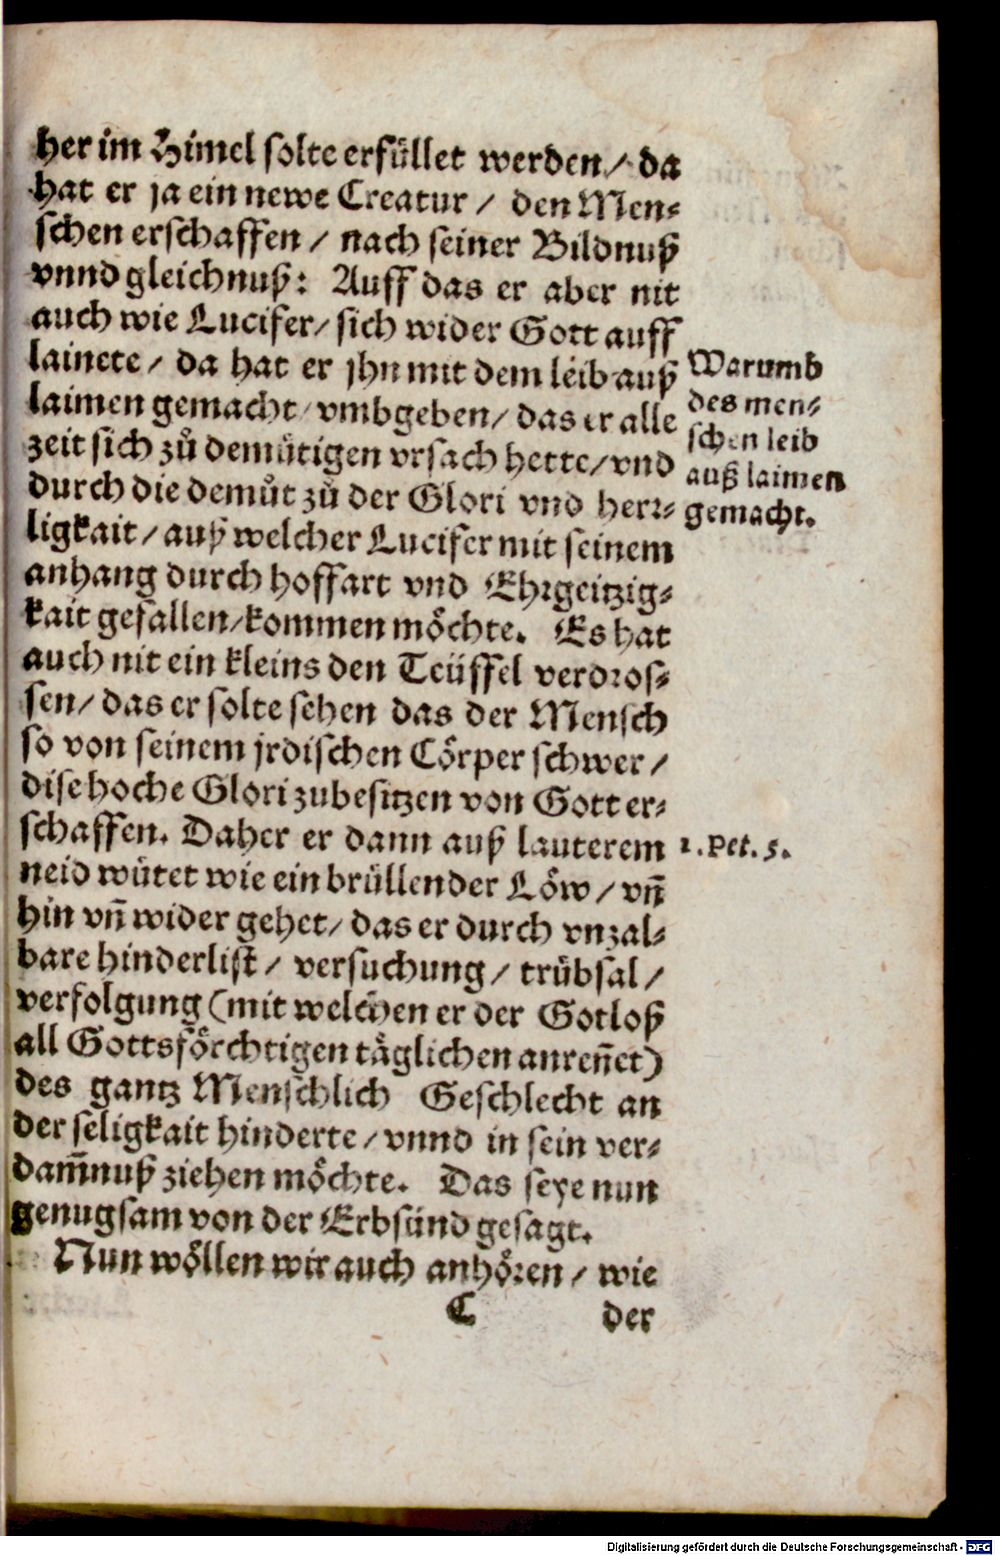 her im Himel solte erfüllet werden / da
hat er ja ein newe Creatur / den Men⸗
schen erschaffen / nach seiner Bildnuß
vnnd gleichnuß: Auff das er aber nit
auch wie Lucifer / sich wider Gott auff
lainete / da hat er jhn mit dem leib auß
laimen gemacht / vmbgeben / das er alle
zeit sich zů demütigen vrsach hette / vnd
durch die demůt zů der Glori vnd herr⸗
ligkait / auß welcher Lucifer mit seinem
anhang durch hoffart vnd Ehrgeitzig⸗
kait gefallen / kommen möchte. Es hat
auch nit ein kleins den Teüffel verdros⸗
sen / das er solte sehen das der Mensch
so von seinem jrdischen Cörper schwer /
dise hoche Glori zubesitzen von Gott er⸗
schaffen. Daher er dann auß lauterem
neid wütet wie ein brüllender Löw / vñ
hin vñ wider gehet / das er durch vnzal⸗
bare hinderlist / versuchung / trübsal /
verfolgung (mit welchen er der Gotloß
all Gottsförchtigen täglichen anreñet)
des gantz Menschlich Geschlecht an
der seligkait hinderte / vnnd in sein ver⸗
dam̃nuß ziehen möchte. Das seye nun
genugsam von der Erbsünd gesagt.
Nun wöllen wir auch anhören / wie
C der
Warumb
des men⸗
schen leib
auß laimen
gemacht.
1. Pet. 5.
Digitalisierung gefördert durch die Deutsche Forschungsgemeinschaft - DFG